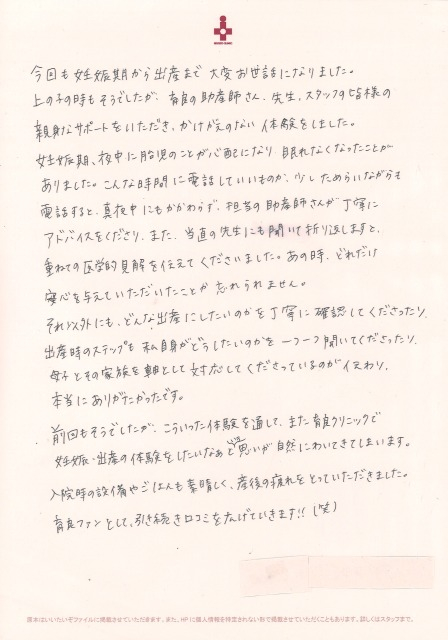 今回も妊娠期から出産まで大変お世話になりました。
上の子の時もそうでしたが、育良の助産師さん、先生、スタッフの皆様の
親身なサポートをいただき、かけがえのない体験をしました。
妊娠期、夜中に胎児のことが心配になり眠れなくなったことが
ありました。こんな時間に電話していいものか、少しためらいながらも
電話すると、真夜中にもかかわらず、担当の助産師さんが丁寧に
アドバイスをくださり、また、当直の先生にも聞いて折り返しますと、
重ねての医学的見解を伝えてくださいました。あの時、どれだけ
安心を与えていただいたことか忘れられません。
それ以外にも、どんな出産にしたいのかを丁寧に確認してくださったり、
出産時のステップも私自身がどうしたいのかを一つ一つ聞いてくださったり、
母子とその家族を軸として対応してくださっているのが伝わり、
本当にありがたかったです。
前回もそうでしたが、こういった体験を通して、また育良クリニックで
妊娠・出産の体験をしたいなあと思いが自然にわいてきてしまいます。
入院時の設備やごはんも素晴しく、産後の疲れをとっていただきました。
育良ファンとして、引き続き口コミを広げていきます!!(笑)
原本はいいたいぞファイルに掲載させていただきます。また、HPに個人情報を特定されない形で掲載させていただくこともあります。詳しくはスタッフまで。